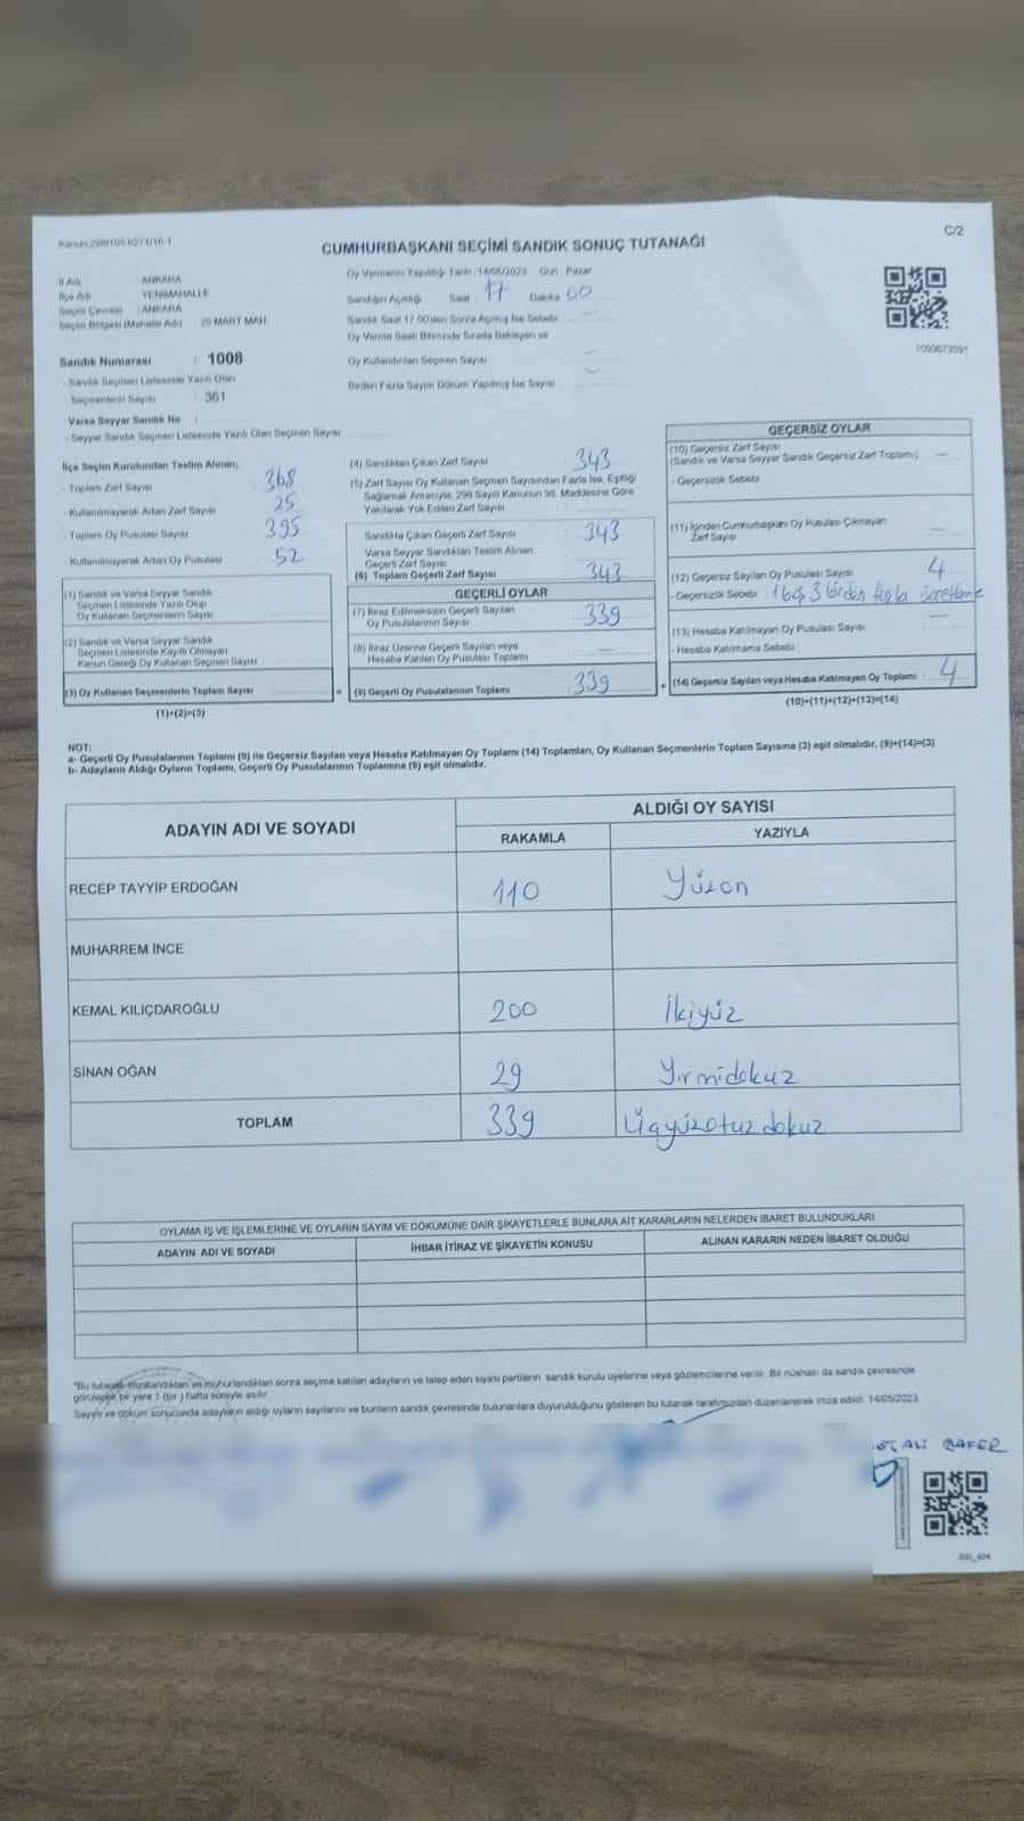 C/2
CUMHURBAŞKANI SEÇİMİ SANDIK SONUÇ TUTANAĞI
İl Adı : ANKARA
İlçe Adı : YENİMAHALLE
Seçim Çevresi : ANKARA
Seçim Bölgesi (Mahalle Adı) : 25 MART MAH.
Oy Vermenin Yapıldığı Tarih : 14/05/2023 Gün : Pazar
Sandığın Açıldığı Saat : 17 Dakika : 00
Sandık Saat 17.00'den Sonra Açılmış İse Sebebi
Oy Verme Saati Bitiminde Sırada Bekleyen ve
Oy Kullandırılan Seçmen Sayısı
Birden Fazla Sayım Döküm Yapılmış İse Sayısı
Sandık Numarası : 1008
- Sandık Seçmen Listesinde Yazılı Olan
Seçmenlerin Sayısı : 361
Varsa Seyyar Sandık No :
- Seyyar Sandık Seçmen Listesinde Yazılı Olan Seçmen Sayısı
İlçe Seçim Kurulundan Teslim Alınan;
- Toplam Zarf Sayısı 368
- Kullanılmayarak Artan Zarf Sayısı 25
- Toplam Oy Pusulası Sayısı 395
- Kullanılmayarak Artan Oy Pusulası 52
(1) Sandık ve Varsa Seyyar Sandık
Seçmen Listesinde Yazılı Olup
Oy Kullanan Seçmenlerin Sayısı
(2) Sandık ve Varsa Seyyar Sandık
Seçmen Listesinde Kayıtlı Olmayan
Kanun Gereği Oy Kullanan Seçmen Sayısı
(3) Oy Kullanan Seçmenlerin Toplam Sayısı
(1)+(2)=(3)
(4) Sandıktan Çıkan Zarf Sayısı 343
(5) Zarf Sayısı Oy Kullanan Seçmen Sayısından Fazla İse, Eşitliği
Sağlamak Amacıyla, 298 Sayılı Kanunun 98. Maddesine Göre
Yakılarak Yok Edilen Zarf Sayısı
Sandıkta Çıkan Geçerli Zarf Sayısı 343
Varsa Seyyar Sandıktan Teslim Alınan
Geçerli Zarf Sayısı
(6) Toplam Geçerli Zarf Sayısı 343
GEÇERLİ OYLAR
(7) İtiraz Edilmeksizin Geçerli Sayılan
Oy Pusulalarının Sayısı 339
(8) İtiraz Üzerine Geçerli Sayılan veya
Hesaba Katılan Oy Pusulası Toplamı
= (9) Geçerli Oy Pusulalarının Toplamı 339
GEÇERSİZ OYLAR
(10) Geçersiz Zarf Sayısı
(Sandık ve Varsa Seyyar Sandık Geçersiz Zarf Toplamı)
- Geçersizlik Sebebi
(11) İçinden Cumhurbaşkanı Oy Pusulası Çıkmayan
Zarf Sayısı
(12) Geçersiz Sayılan Oy Pusulası Sayısı 4
- Geçersizlik Sebebi : 1 boş 3 birden fazla işaretleme
(13) Hesaba Katılmayan Oy Pusulası Sayısı
- Hesaba Katılmama Sebebi
+ (14) Geçersiz Sayılan veya Hesaba Katılmayan Oy Toplamı 4
(10)+(11)+(12)+(13)=(14)
NOT:
a- Geçerli Oy Pusulalarının Toplamı (9) ile Geçersiz Sayılan veya Hesaba Katılmayan Oy Toplamı (14) Toplamları, Oy Kullanan Seçmenlerin Toplam Sayısına (3) eşit olmalıdır. (9)+(14)=(3)
b- Adayların Aldığı Oyların Toplamı, Geçerli Oy Pusulalarının Toplamına (9) eşit olmalıdır.
ADAYIN ADI VE SOYADI ALDIĞI OY SAYISI
RAKAMLA YAZIYLA
RECEP TAYYİP ERDOĞAN 110 Yüzon
MUHARREM İNCE
KEMAL KILIÇDAROĞLU 200 İkiyüz
SİNAN OĞAN 29 Yirmidokuz
TOPLAM 339 Üçyüzotuzdokuz
OYLAMA İŞ VE İŞLEMLERİNE VE OYLARIN SAYIM VE DÖKÜMÜNE DAİR ŞİKAYETLERLE BUNLARA AİT KARARLARIN NELERDEN İBARET BULUNDUKLARI
ADAYIN ADI VE SOYADI İHBAR İTİRAZ VE ŞİKAYETİN KONUSU ALINAN KARARIN NEDEN İBARET OLDUĞU
*Bu tutanak imzalandıktan ve mühürlendikten sonra seçime katılan adayların ve talep eden siyasi partilerin sandık kurulu üyelerine veya gözlemcilerine verilir. Bir nüshası da sandık çevresinde
görülebilen bir yere 1 (bir) hafta süreyle asılır.
Sayım ve döküm sonucunda adayların aldığı oyların sayılarını ve bunların sandık çevresinde bulunanlara duyurulduğunu gösteren bu tutanak tarafımızdan düzenlenerek imza edildi. 14/05/2023
ALİ